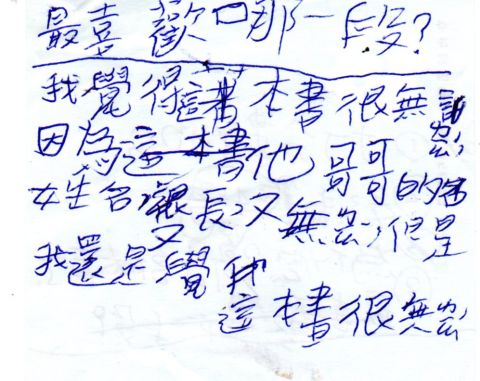 最喜歡哪一段?
我覺得這本書很無聊
因為這本書他哥哥的
姓名又很長又無聊但是
我還是覺得
這本書很無聊